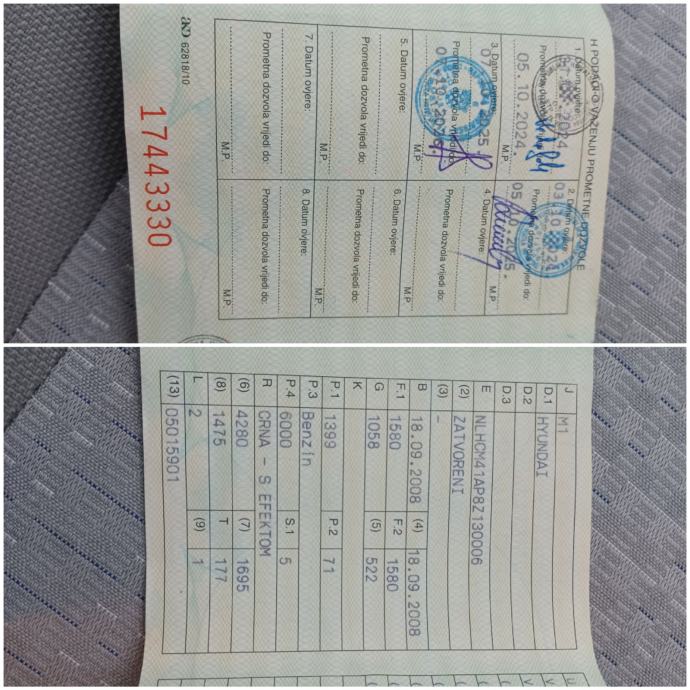 H PODACI O VAŽENJU PROMETNE DOZVOLE
1. Datum ovjere:
2024.
Prometna dozvola vrijedi do:
05.10.2024.
M.P.
2. Datum ovjere:
03.10.2024.
Prometna dozvola vrijedi do:
05.10.2025.
M.P.
3. Datum ovjere:
Prometna dozvola vrijedi do:
M.P.
4. Datum ovjere:
Prometna dozvola vrijedi do:
M.P.
5. Datum ovjere:
Prometna dozvola vrijedi do:
M.P.
6. Datum ovjere:
Prometna dozvola vrijedi do:
M.P.
7. Datum ovjere:
Prometna dozvola vrijedi do:
M.P.
8. Datum ovjere:
Prometna dozvola vrijedi do:
M.P.
62818/10
17443330
J M1
D.1 HYUNDAI
D.2
D.3
E NLHCM41AP8Z130006
(2) ZATVORENI
(3) –
B 18.09.2008 (4) 18.09.2008
F.1 1580 F.2 1580
G 1058 (5) 522
K
P.1 1399 P.2 71
P.3 Benzin
P.4 6000 S.1 5
R CRNA - S EFEKTOM
(6) 4280 (7) 1695
(8) 1475 T 177
L 2 (9) 1
(13) 05015901